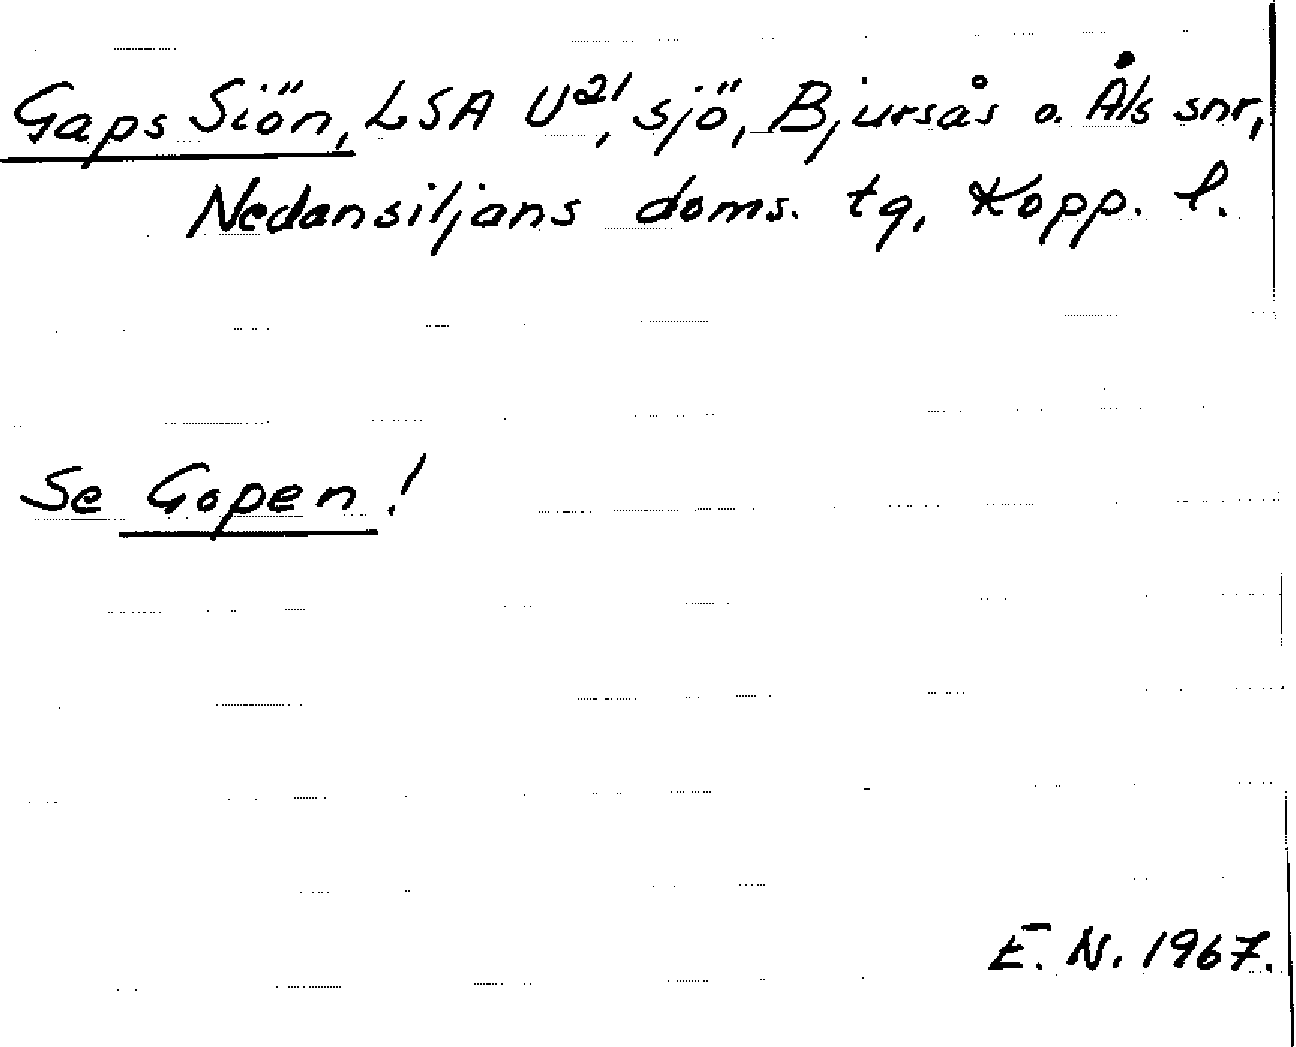 Gaps Siön, LSA U²¹, sjö, Bjursås o. Åls snr,
Nedansiljans doms. tg, Kopp. l.
Se Gopen!
E. N. 1967.